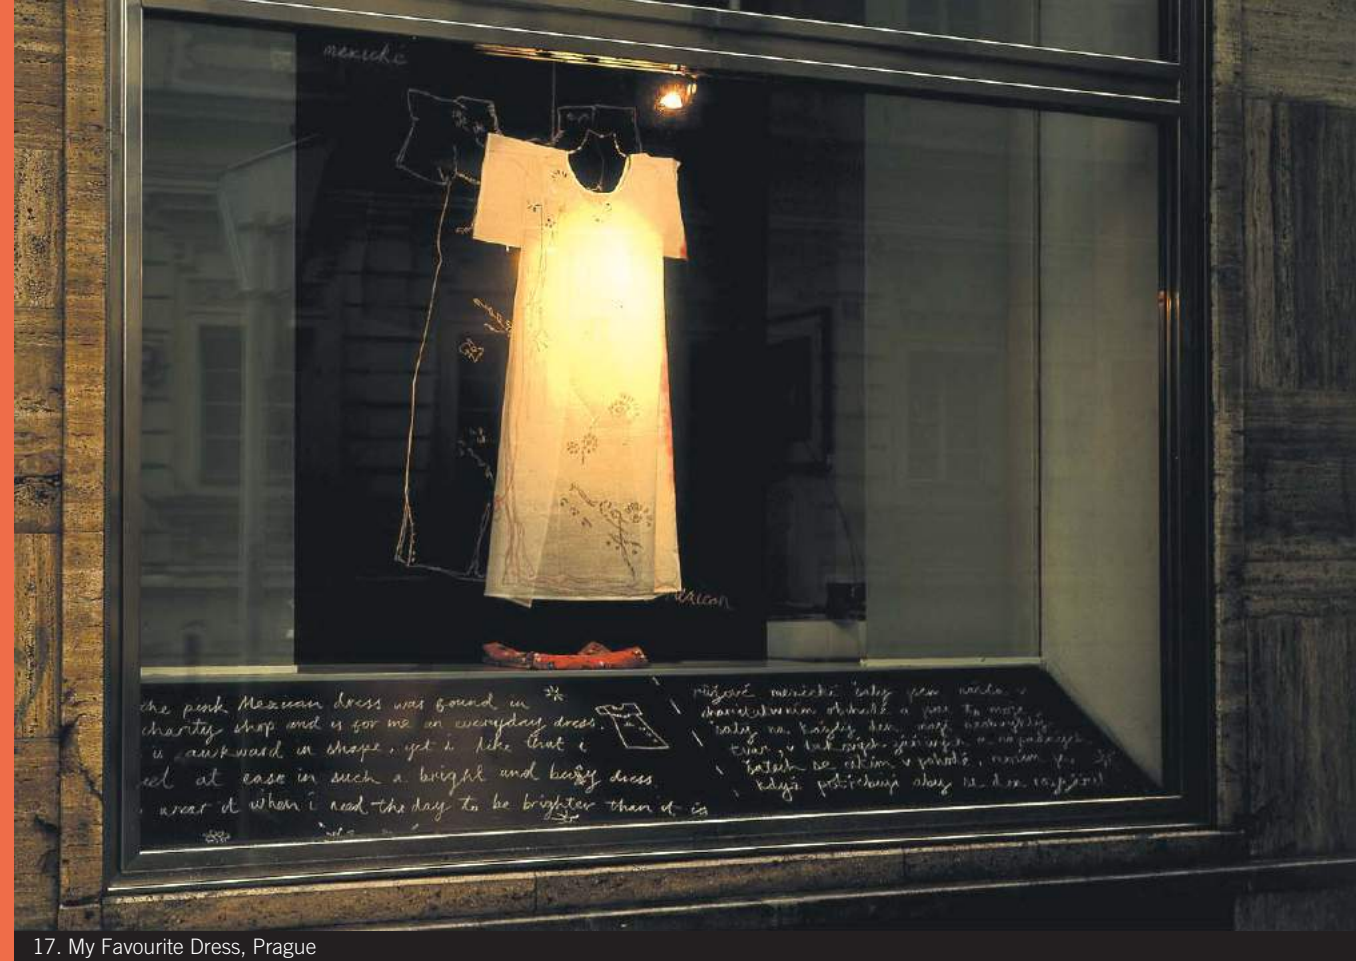 mexické
mexican
the pink Mexican dress was found in
charity shop and is for me an everyday dress.
is awkward in shape, yet i like that i
at ease in such a bright and busy dress.
wear it when i need the day to be brighter than it is
růžové mexické šaty jsem našla v
charitativním obchodě a jsou to moje
šaty na každý den. mají
tvar, v tak
šatech se cítím v pohodě, nosím je,
když potřebuji aby se den rozjasnil
17. My Favourite Dress, Prague